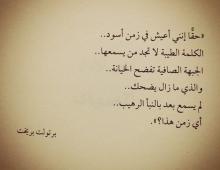 «حقًا إنني أعيش في زمن أسود..
الكلمة الطيبة لا تجد من يسمعها..
الجبهة الصافية تفضح الخيانة..
والذي ما زال يضحك..
لم يسمع بعد بالنبأ الرهيب..
أي زمن هذا؟».
برتولت بريخت